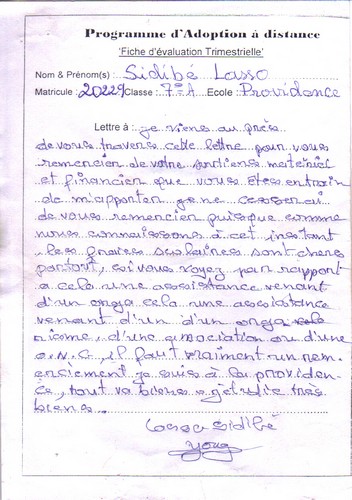 Programme d'Adoption à distance
'Fiche d'évaluation Trimestrielle'
Nom & Prénom(s): Sidibé Lasso
Matricule: 20229 Classe: 7e A Ecole: Providence
Lettre à: je viens au près
de vous travers cette lettre pour vous
remercier de votre soutiens materiel
et financier que vous êtes entrain
de m'apporter je ne cesserai
de vous remercier puisque comme
nous connaissons à cet instant
les fraies scolaires sont chers
partout, si vous voyez par rapport
a cela une assistance venant
d'un orga cela une assistance
venant d'un d'un orga
nisme, d'une association ou d'une
O.N.G, il faut vraiment un rem
erciement je suis à la providen
ce, tout va biens, j'etudie très
biens.
Lasso Sidibé